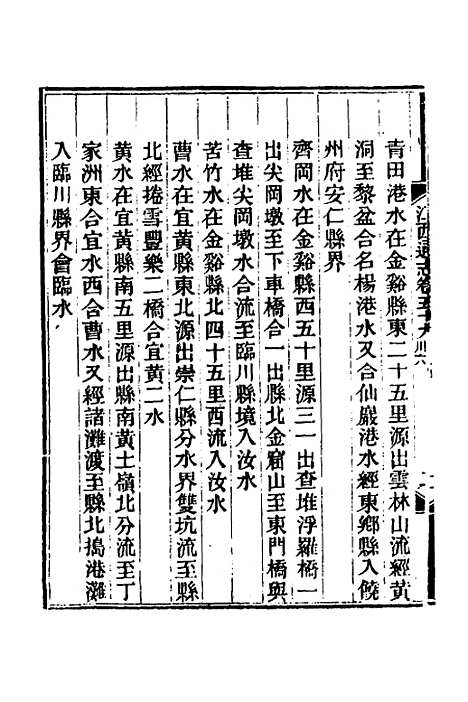 江西通志卷五十九 川六
青田港水在金谿縣東二十五里源出雲林山流經黃
洞至黎盆合名楊港水又合仙巖港水經東鄉縣入饒
州府安仁縣界
齊岡水在金谿縣西五十里源三一出查堆浮羅橋一
出尖岡墩至下車橋合一出縣北金窟山至東門橋與
查堆尖岡墩水合流至臨川縣境入汝水
苦竹水在金谿縣北四十五里西流入汝水
曹水在宜黃縣東北源出崇仁縣分水界雙坑流至縣
北經捲雪豐樂二橋合宜黃二水
黃水在宜黃縣南五里源出縣南黃土嶺北分流至丁
家洲東合宜水西合曹水又經諸灘渡至縣北搗港灘
入臨川縣界會臨水